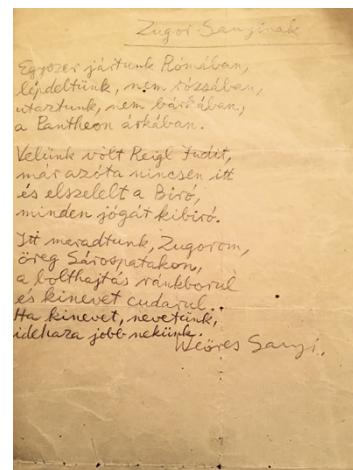 Zugor Sanyinak
Egyszer jártunk Rómában,
lépdeltünk, nem rózsában,
utaztunk, nem bársában,
a Pantheon árkában.
Velünk volt Reigl Judit,
már azóta nincsen itt
és elszelelt a Biró,
minden jógát kibiró.
Itt maradtunk, Zugorom,
öreg Sárospatakon,
a bolthajtás ránkborul
és kinevet cudarul..
Ha kinevet, nevetünk,
idehaza jobb nekünk.
Weöres Sanyi.